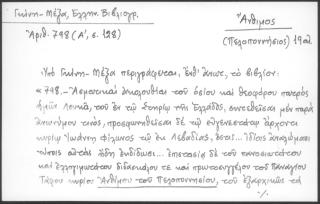 Γκίνη-Μέξα, Ἑλλην. Βιβλιογρ.
Ἀριθ. 798 (Α΄, σ. 128)
Ἄνθιμος
(Πελοποννήσιος) 19 αἰ.
Ὑπὸ Γκίνη-Μέξα περιγράφεται, τὸ βιβλίον:
« 798.- Ἀσματικὴ ἀκολουθία τοῦ ὁσίου καὶ θεοφόρου πατρὸς
ἡμῶν Λουκᾶ, τοῦ ἐν τῷ Στειρίῳ τῆς Ἑλλάδος, συντεθεῖσα μὲν παρὰ
ἀνωνύμου τινός, προσφωνηθεῖσα δὲ τῷ εὐγενεστάτῳ ἄρχοντι
κυρίῳ Ἰωάννῃ Φίλωνος τῷ ἐκ Λεβαδίας, ὅστις... ἰδίοις ἀναλώμασι
τύποις αὐτὴν ἤδη ἐκδίδωσι... ἐπιστασίᾳ δὲ τοῦ πανοσιωτάτου
καὶ ἐλλογιμωτάτου διδασκάλου τε καὶ πρωτοσυγγέλου τοῦ Παναγίου
Τάφου κυρίου Ἀνθίμου τοῦ Πελοποννησίου, τοῦ ἐξαρχικῶς τὰ
·/.